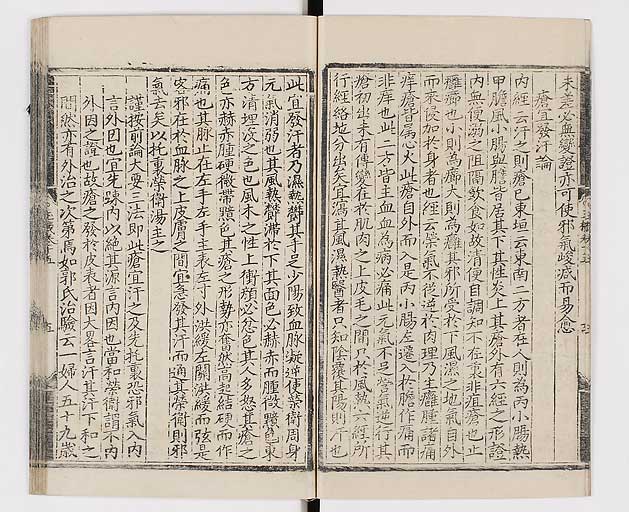 未差必無變證亦可使邪氣峻减而易愈
瘡宜發汗論
内經云汗之則瘡已東垣云東南二方者在人則為丙小腸熱
甲膽風小腸與膽皆居其下其性炎上其瘡外有六經之形證
内無便溺之阻隔飲食如故清便自調知不在裏非疽瘡也止
癰癤也小則為癤大則為癰其邪所受於下風濕之地氣自外
而來侵加於身者也經云榮氣不從逆於肉理乃生癰腫諸痛
痒瘡皆屬心火此瘡自外而入是丙小腸左遷入於膽作痛而
非痒也此二方皆主血血為病必痛此元氣不足榮氣逆行其
瘡初出未有傳變在於肌肉之上皮毛之間只於風熱六經所
行經絡地分出矣宜瀉其風濕熱醫者只知陰覆其陽則汗也
此宜發汗者乃濕熱鬱其手足少陽致血脉凝逆使榮衛周身
元氣消弱也其風熱鬱滯於下其面色必赤而腫微黯色東
方清埋没之色也風木之性上衝顔必忿色其人多怒其瘡之
色亦赤赤腫硬微帶黯色其瘡之形勢亦奮然高起結硬而作
痛也其脉止在左手左手主表左寸外洪緩左關洪緩而弦是
客邪在於血脉之上皮膚之間宜急發其汗而通其榮衛則邪
氣去矣以托裏榮衛湯主之
謹按前論大要三法即此瘡宜汗之及先托裏恐邪氣入内
言外因也宜先踈内以絶其源言内因也當和榮衛謂不内
外因之證也故瘡之發於皮表者因大畧言汗其汗下和之
間然亦有外治之次第焉如郭氏治驗云一婦人五十九歳